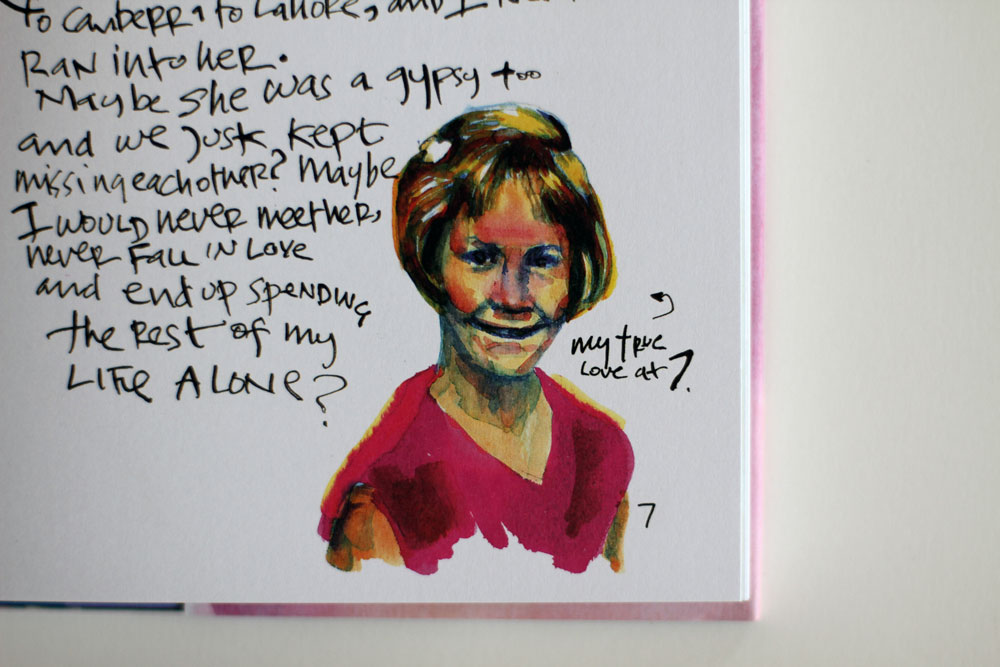 to Canberra to Lahore, and I
Ran into her.
Maybe she was a gypsy too
and we just kept
missing each other? Maybe
I would never meet her,
never Fall in Love
and end up spending
the Rest of my
Life Alone?
my true
Love at 7.
7